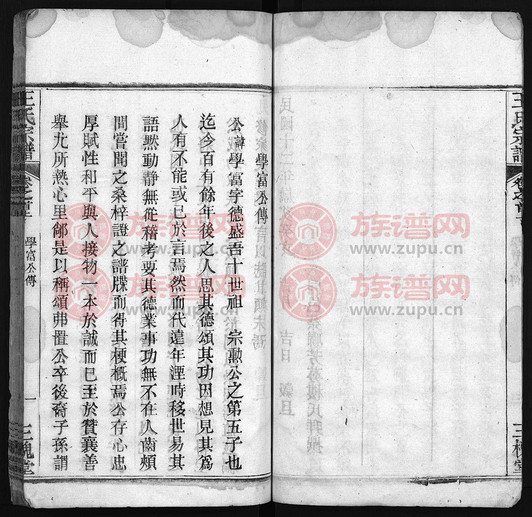 王氏宗譜
三槐堂
民國十二年
吉日
學富公傳
公諱學富字德盛吾十世祖 宗勲公之第五子也
迄今百有餘年後之人思其德頌其功因想見其為
人有不能或已於言焉然而代遠年湮時移世易其
語默動靜無從稽考要其德業事功無不在人齒頰
間嘗聞之桑梓證之譜牒而得其梗概焉公存心忠
厚賦性和平與人接物一本於誠而已至於贊襄善
舉尤所熱心里是以稱頌弗置公卒後裔子孫謂
王氏宗譜
學富公傳
一
三槐堂
族谱网
www.zupu.cn
族谱网
www.zupu.cn
族谱网
www.zupu.cn
族谱网
www.zupu.cn